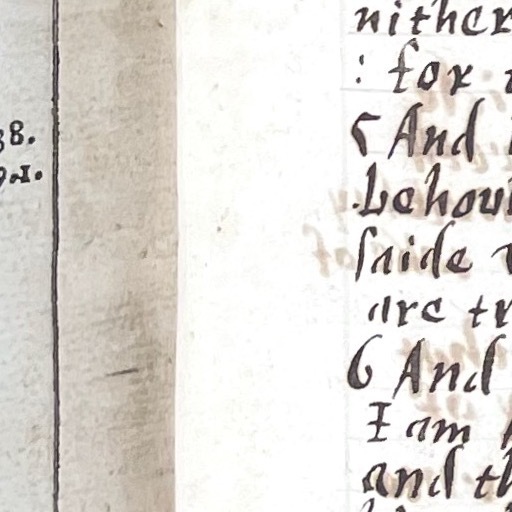 38.
91.
nither
: for
5 And
behoul
saide
are tr
6 And
I am
and th